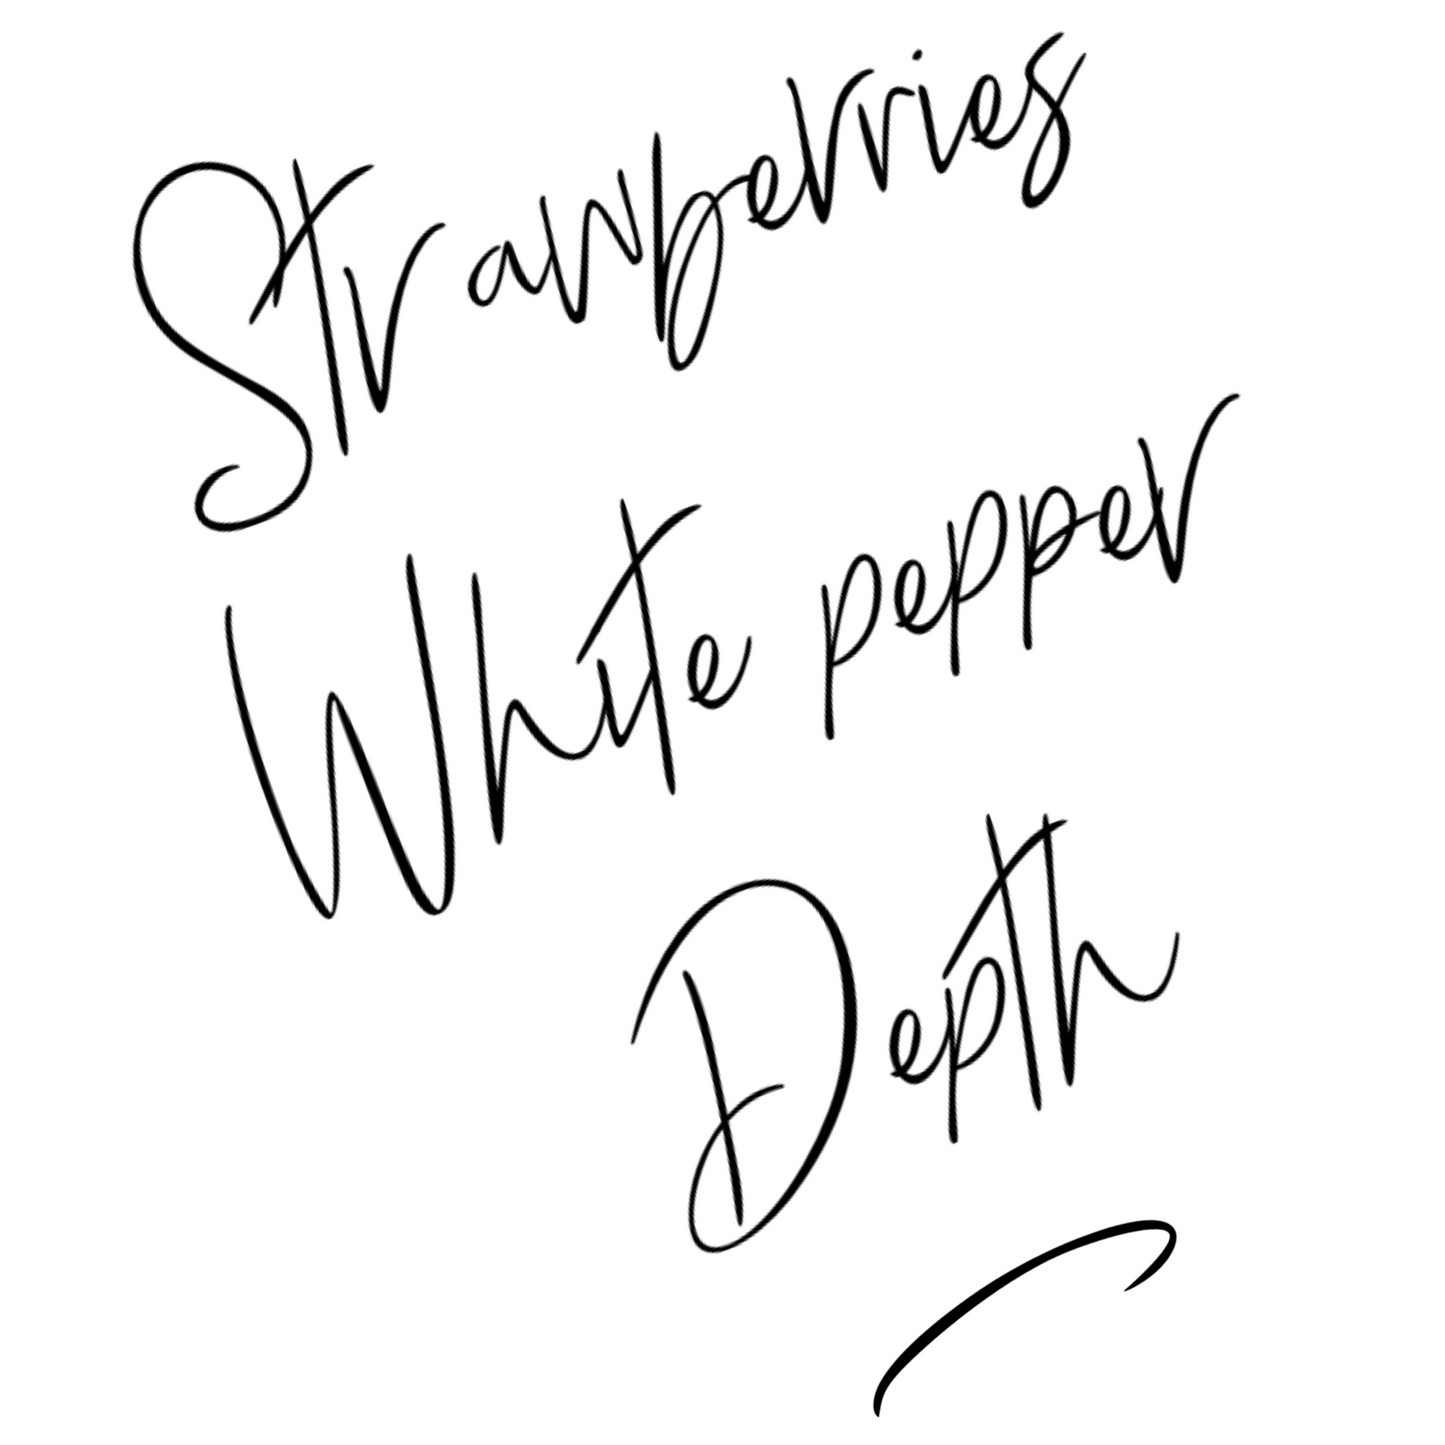 Strawberries
White pepper
Depth